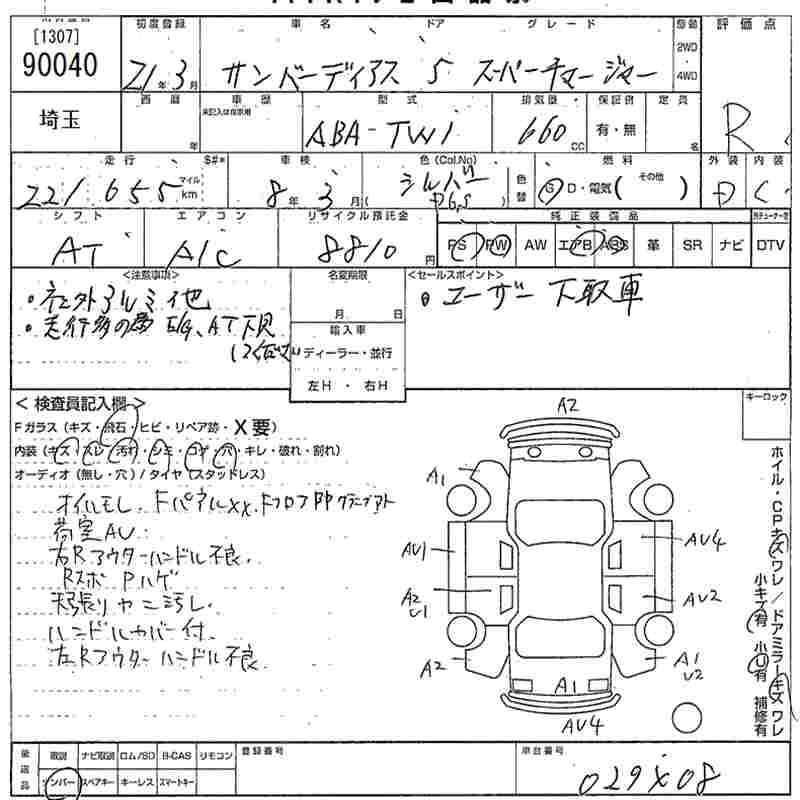 [1307]
90040
初度登録
21年3月
車名 ドア グレード
サンバーディアス 5 スーパーチャージャー
駆動
2WD
4WD
評価点
R
埼玉
西暦
年
車歴
未記入は自家用
型式
ABA-TW1
排気量
660cc
保証例
有・無
定員
名
走行
221655
マイル
km
S#*
車検
8年3月(
色(Col.No)
シルバー
D6S)
色替
燃料
G D・電気( その他 )
外装
D
内装
C
シフト
AT
エアコン
A/C
リサイクル預託金
8810円
純正装備品
PS PW AW エアB ABS 革 SR ナビ DTV
<注意事項>
・社外アルミ他
・走行多の為 E/G、AT下見
して下さい
名変期限
月 日
輸入車
ディーラー・並行
左H・右H
<セールスポイント>
ユーザー下取車
<検査員記入欄>
Fガラス(キズ・飛石・ヒビ・リペア跡・X要)
内装(キズ・スレ・汚れ・シミ・コゲ・穴・キレ・破れ・割れ)
オーディオ(無し・穴)/タイヤ(スタッドレス)
オイルモレ. FパネルXX. Fフロア
荷室AU.
右Rアウターハンドル不良.
Rスポ Pハゲ
天張りヤニ汚レ.
ハンドルカバー付.
左Rアウターハンドル不良.
キーロック
A2
A1
AU1
AU4
A2
U1
AU2
A2
A1
U2
A1
AU4
ホイル・CPキズワレ/ドアミラーキズワレ
小キズ有 小U有 補修有
後返品
取説 ナビ取説 ロム/SD B-CAS リモコン
ナンバー スペアキー キーレス スマートキー
登録番号
車台番号
029X08